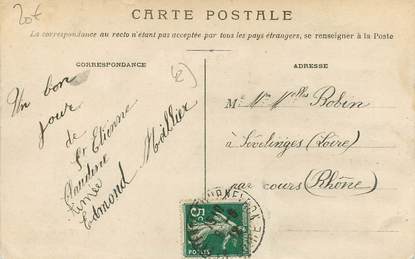 20€
CARTE POSTALE
La correspondance au recto n'étant pas acceptée par tous les pays étrangers, se renseigner à la Poste
CORRESPONDANCE
Un bon
jour
de
St Etienne
Claudine
Aimée
Edmond
ADRESSE
Mr Mme Melles Bobin
à Sevelinges (Loire)
par cours (Rhône)
5c